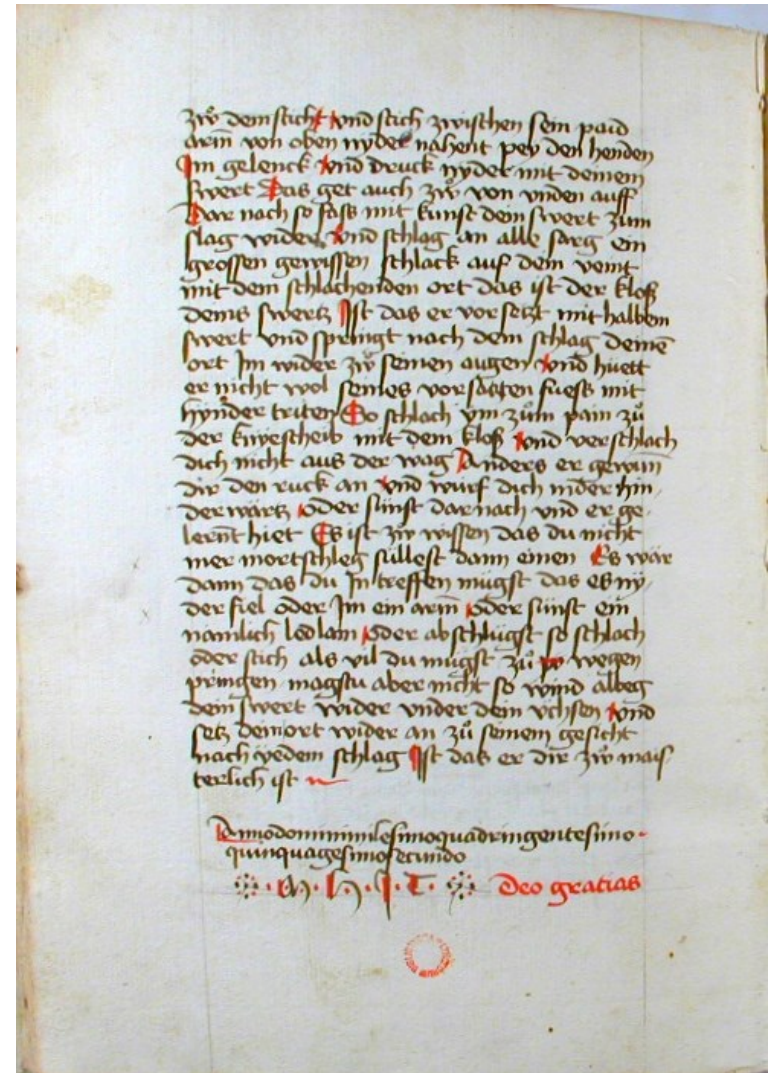 zẘ dem stich vnd stich zwischen sein paid
arm̄ von oben nyder nahent pey den henden
Im gelenck vnd druck nyder mit deinem
swert Das get auch zẘ von vnden auff
Dar nach so fass mit kunst dein swert zum
slag wider, vnd schlag an alle sarg ein
grossen gewissen schlack auf dem veint
mit dem schlachenden ort das ist der kloß
deins swertz Ist das er vor setzt mit halbem
swert vnd springt nach dem schlag deinē
ort Im wider zẘ seinen augen vnd huett
er nicht wol seines vor satzten fuess mit
hynder triten So schlach ym zům pain zů
der knyescheib mit dem kloß vnd verschlach
dich nicht aus der wag Anders er gewin̄
dir den ruck an vnd wurf dich nider hin
der wartz oder sünst dar nach vnd er ge
lernt hiet Es ist zw wissen das du nicht
mer mortschleg süllest dann einen Es wär
dann das du In treffen mügst das es ny
der fiel oder Im ein arm̄ oder sünst ein
namlich led lam oder ab schlügst so schlach
oder stich als vil du mügst zů wegen
pringen magstu aber nicht so wind albeg
dein swert wider vnder dein vchsen vnd
setz dein ort wider an zů seinem gesicht
nach yedem schlag Ist das er dir zẘ mais
terlich ist
Anno domini milesimo quadringentesimo
quinquagesimo secundo
Deo gratias